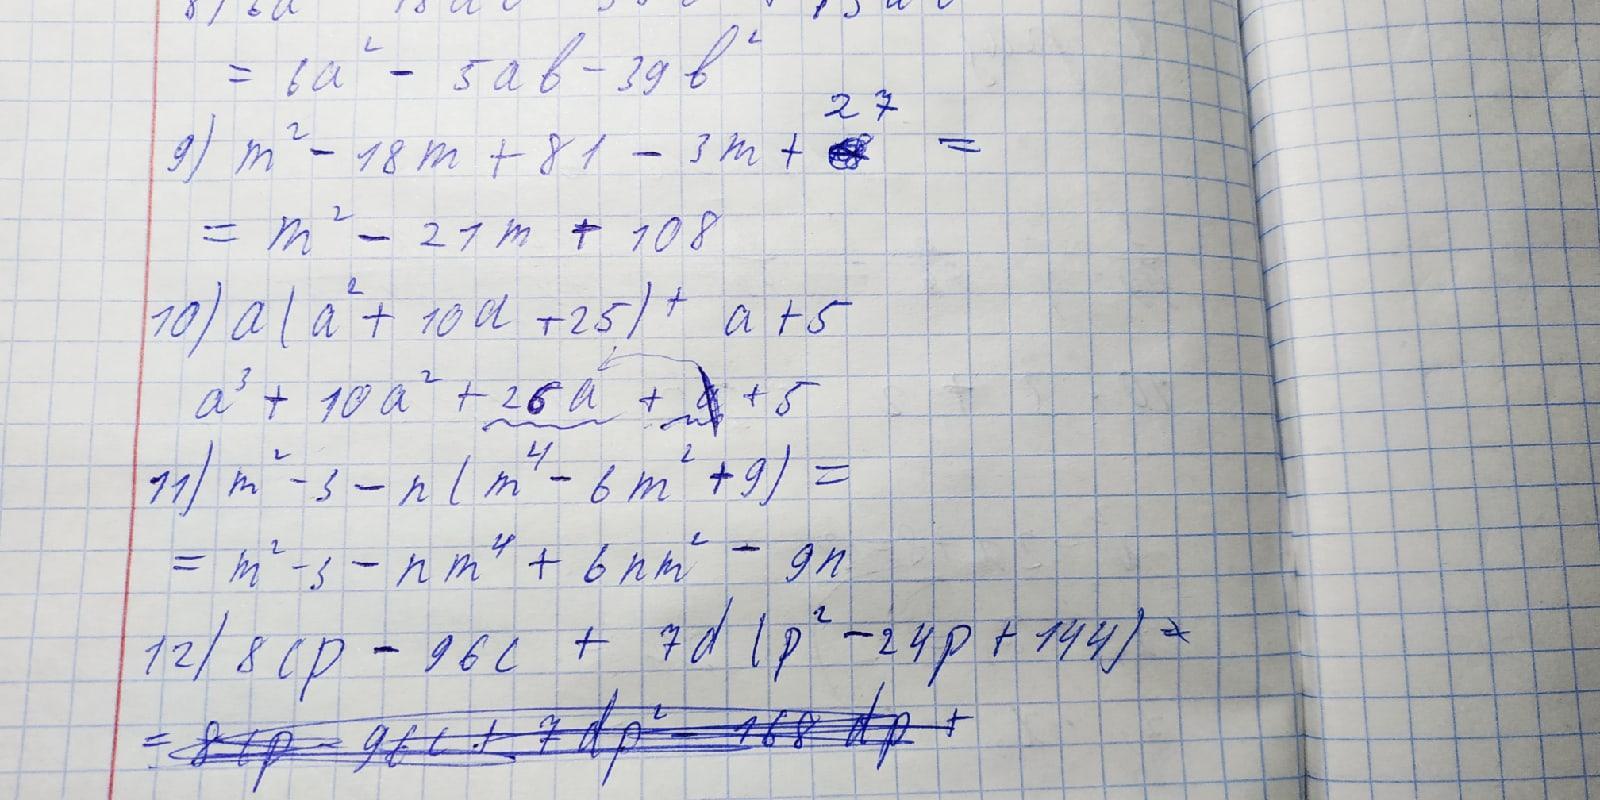 = 6a² - 5ab - 39b²
9) m² - 18m + 81 - 3m + 27 =
= m² - 21m + 108
10) a(a² + 10a + 25) + a + 5
a³ + 10a² + 26a + a + 5
11) m² - 3 - n(m⁴ - 6m² + 9) =
= m² - 3 - nm⁴ + 6nm² - 9n
12) 8cp - 96c + 7d(p² - 24p + 144) =
= 8cp - 96c + 7dp² - 168dp +